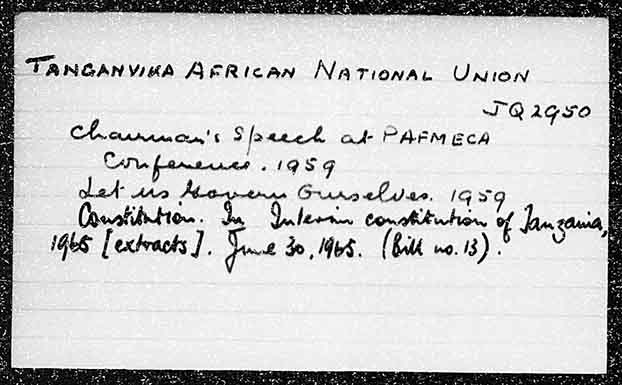 TANGANYIKA AFRICAN NATIONAL UNION
JQ2950
Chairman's Speech at PAFMECA
Conference. 1959
Let us Govern Ourselves. 1959
Constitution. In Interim constitution of Tanzania,
1965 [extracts]. June 30, 1965. (Bill no. 13).